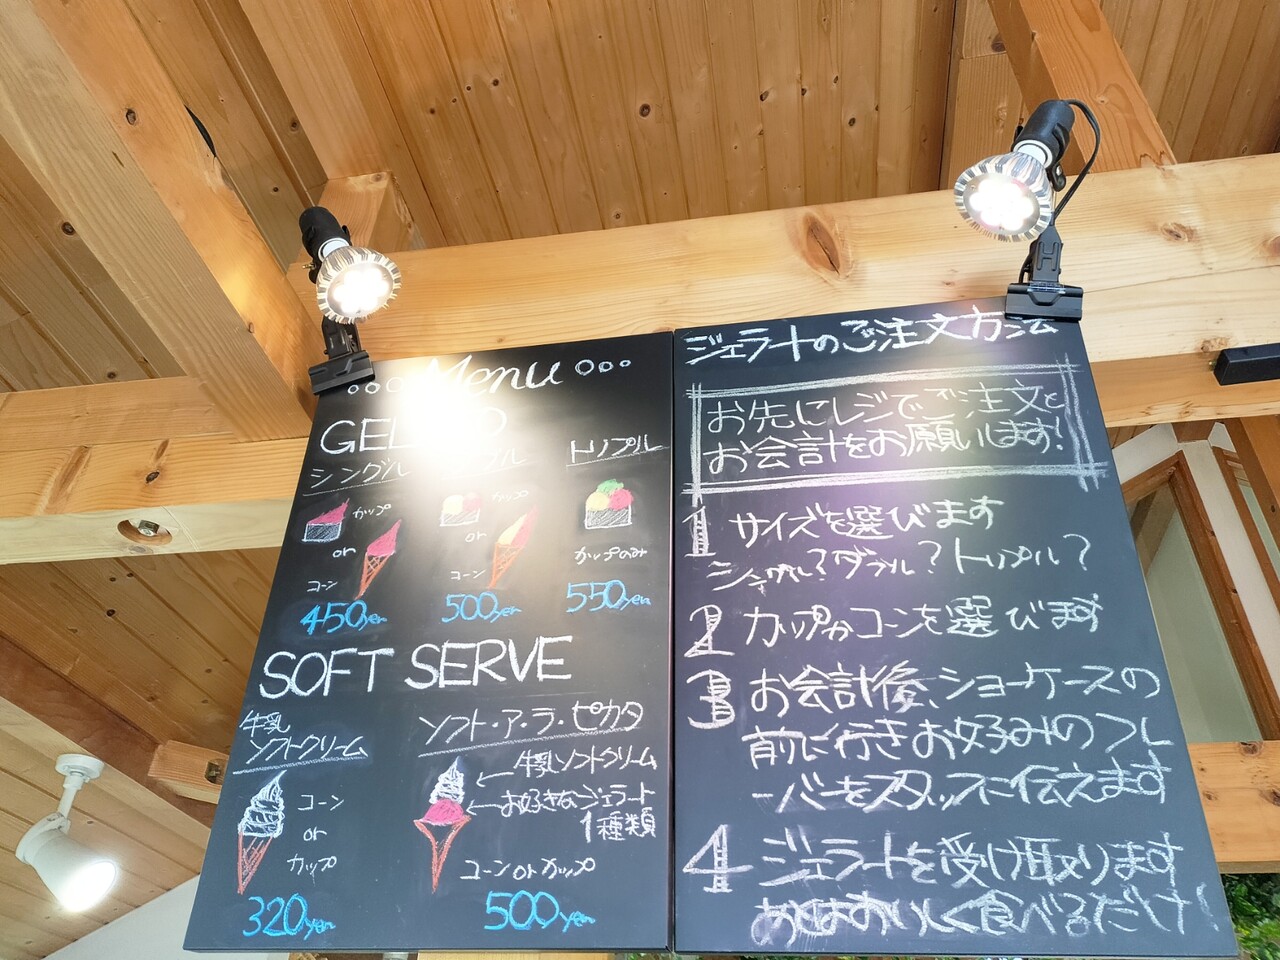 Menu
GELATO
シングル
カップ
or
コーン
450yen
ダブル
カップ
or
コーン
500yen
トリプル
カップのみ
550yen
SOFT SERVE
牛乳
ソフトクリーム
コーン
or
カップ
320yen
ソフト・ア・ラ・ピカタ
牛乳ソフトクリーム
お好きなジェラート
1種類
コーン or カップ
500yen
ジェラートのご注文方法
お先にレジでご注文と
お会計をお願いします!
1 サイズを選びます
シングル?ダブル?トリプル?
2 カップかコーンを選びます
3 お会計後、ショーケースの
前に行きお好みのフレ
ーバーをスタッフに伝えます
4 ジェラートを受け取ります
あとはおいしく食べるだけ!